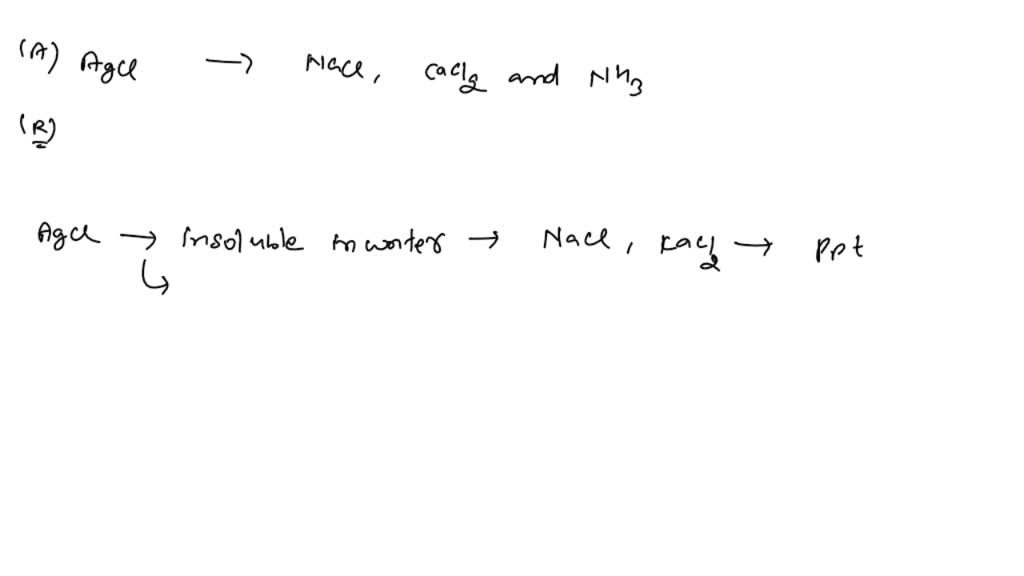 (A) AgCl → NaCl, CaCl2 and NH3
(R)
AgCl → insoluble in water → NaCl, CaCl2 → ppt
↳